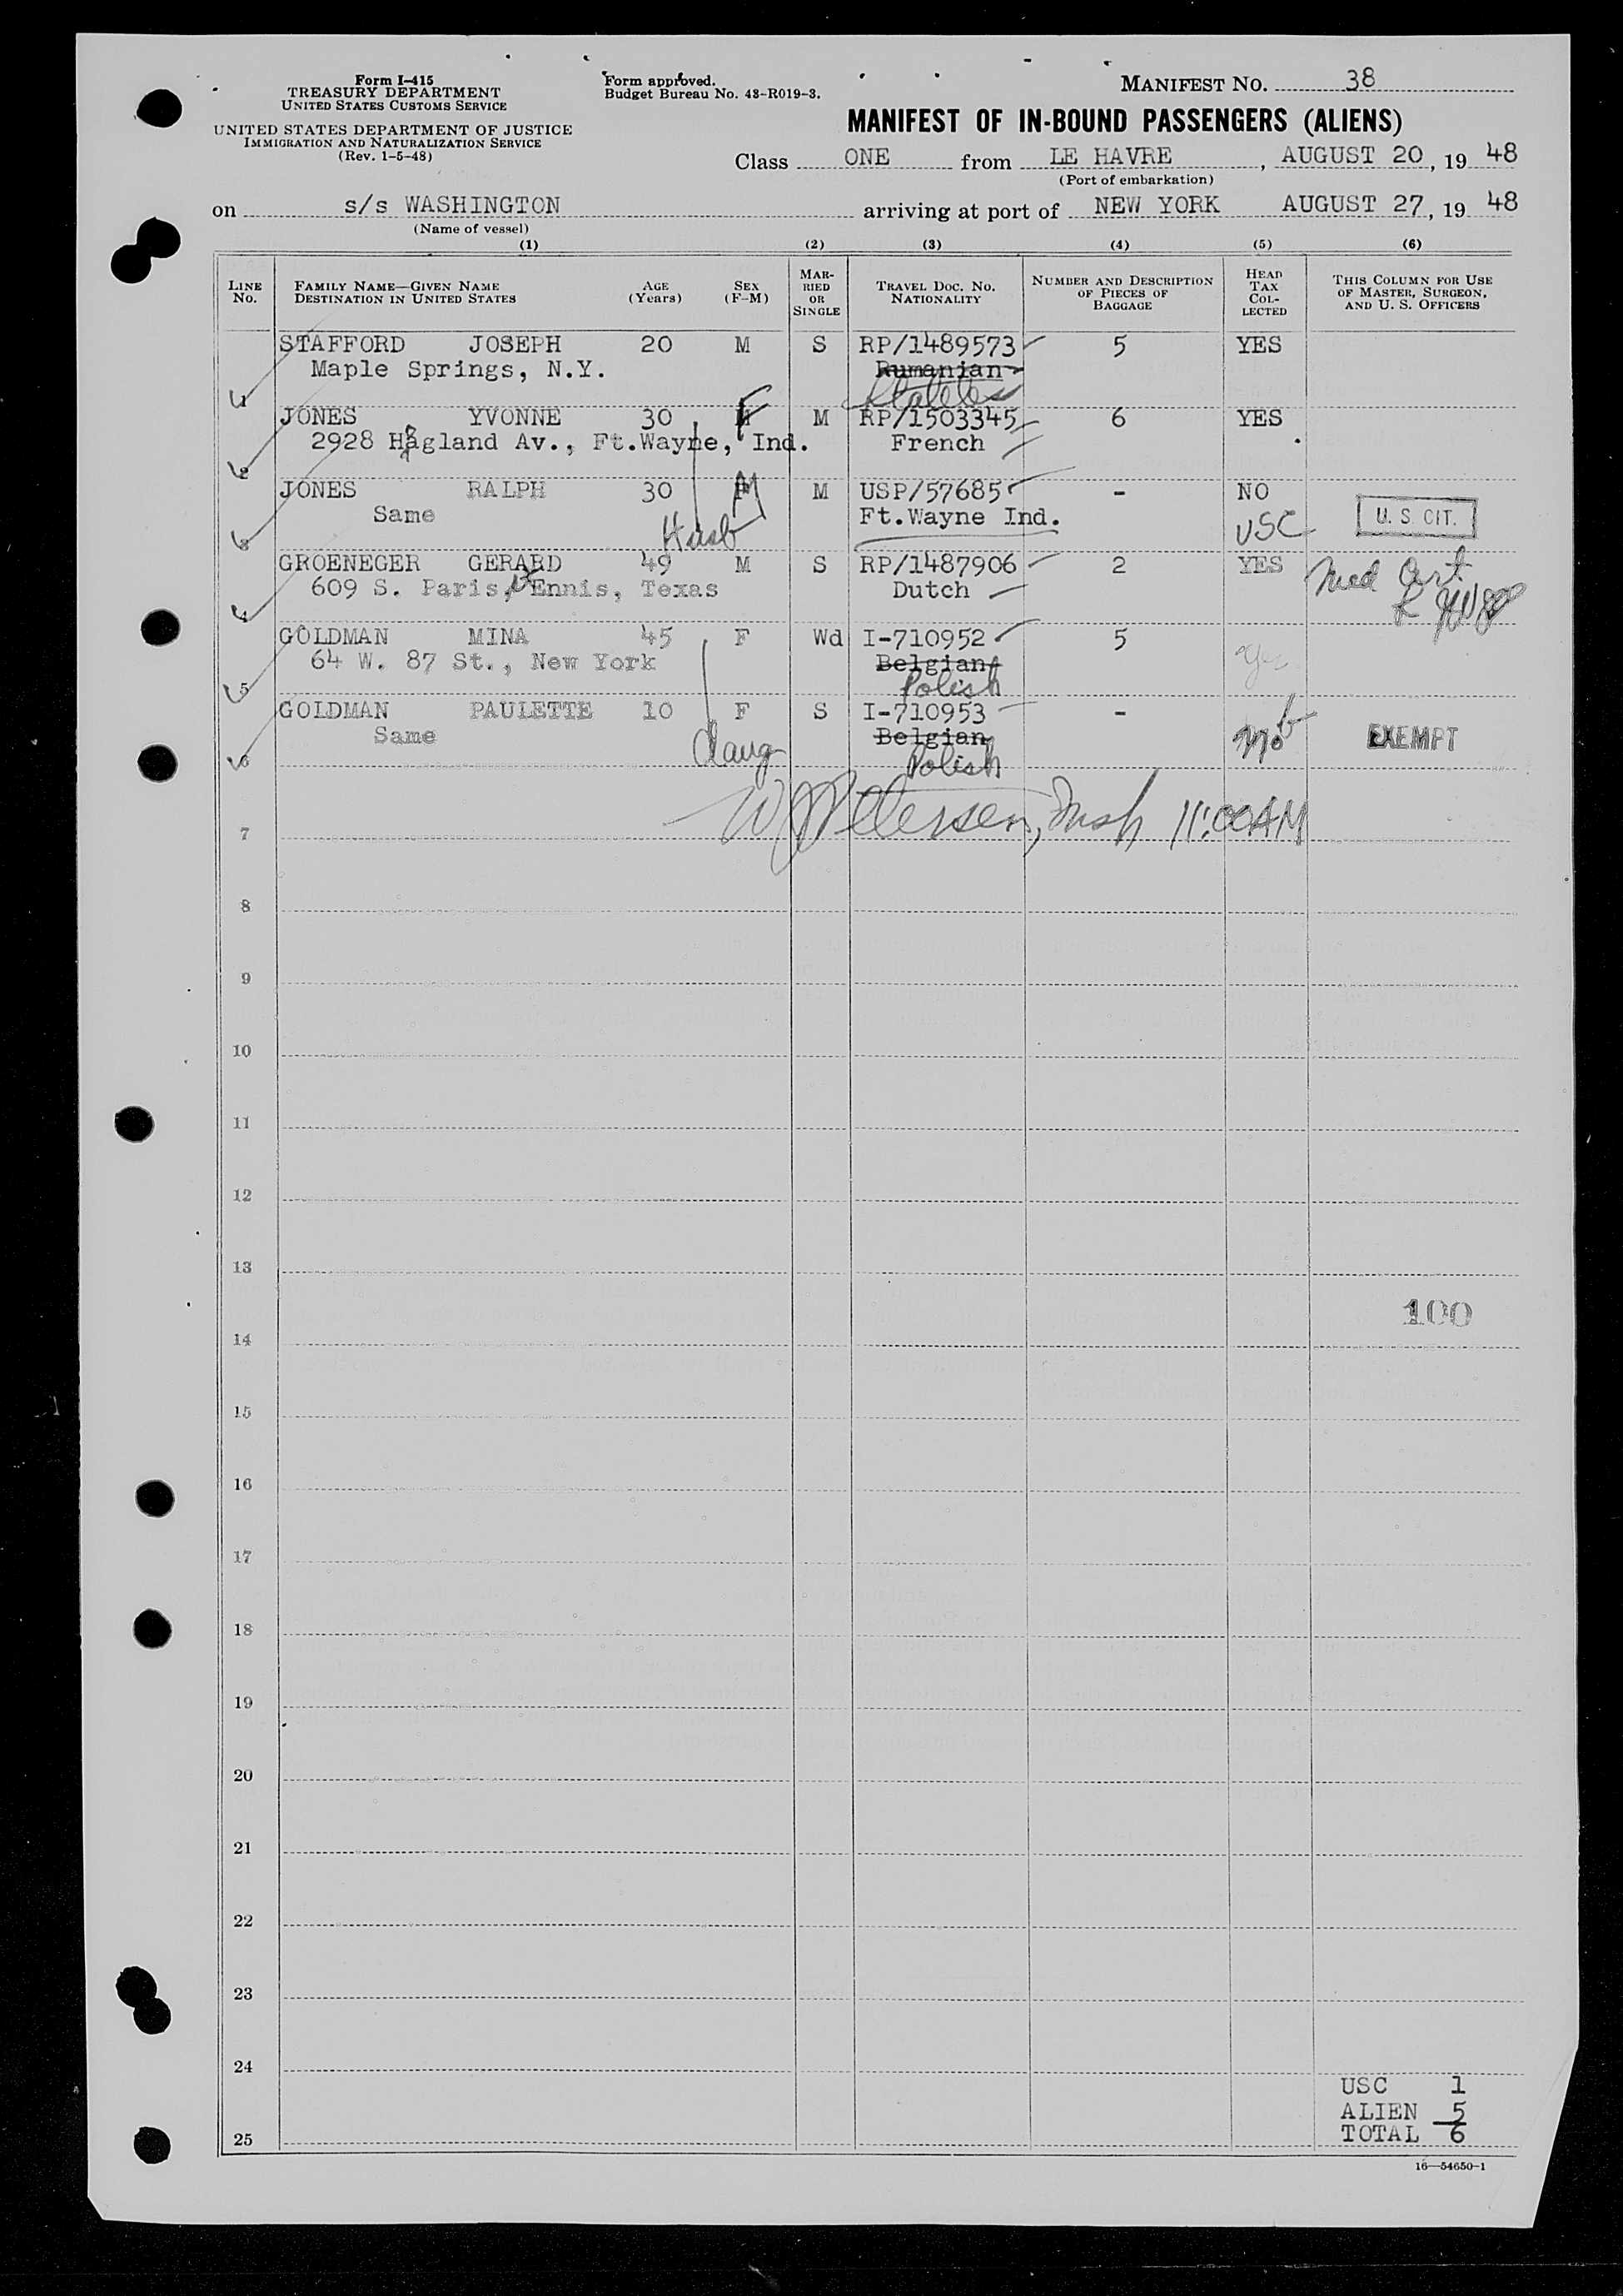 Form I-415
TREASURY DEPARTMENT
UNITED STATES CUSTOMS SERVICE
UNITED STATES DEPARTMENT OF JUSTICE
IMMIGRATION AND NATURALIZATION SERVICE
(Rev. 1-5-48)
Form approved.
Budget Bureau No. 43-R019-3.
MANIFEST NO. 38
MANIFEST OF IN-BOUND PASSENGERS (ALIENS)
Class ONE from LE HAVRE, AUGUST 20, 19 48
(Port of embarkation)
on s/s WASHINGTON arriving at port of NEW YORK AUGUST 27, 19 48
(Name of vessel)
(1) (2) (3) (4) (5) (6)
LINE NO. FAMILY NAME—GIVEN NAME DESTINATION IN UNITED STATES AGE (Years) SEX (F-M) MARRIED OR SINGLE TRAVEL DOC. NO. NATIONALITY NUMBER AND DESCRIPTION OF PIECES OF BAGGAGE HEAD TAX COLLECTED THIS COLUMN FOR USE OF MASTER, SURGEON, AND U. S. OFFICERS
STAFFORD JOSEPH 20 M S RP/1489573 5 YES
Maple Springs, N.Y. Rumanian
1 Stateless
JONES YVONNE 30 F M RP/1503345 6 YES
2928 Hagland Av., Ft.Wayne, Ind. French
2
JONES RALPH 30 M M USP/57685 - NO
Same Ft.Wayne Ind. USC U. S. CIT.
3 Husb
GROENEGER GERARD 49 M S RP/1487906 2 YES Med Cert
609 S. Paris, Ennis, Texas Dutch
4
GOLDMAN MINA 45 F Wd I-710952 5
64 W. 87 St., New York Belgian Yes
5 Polish
GOLDMAN PAULETTE 10 F S I-710953 -
Same Belgian No EXEMPT
6 daug Polish
W J Petersen, Insp 11:00AM
7
8
9
10
11
12
13
100
14
15
16
17
18
19
20
21
22
23
24
USC 1
ALIEN 5
TOTAL 6
25
16—54650-1